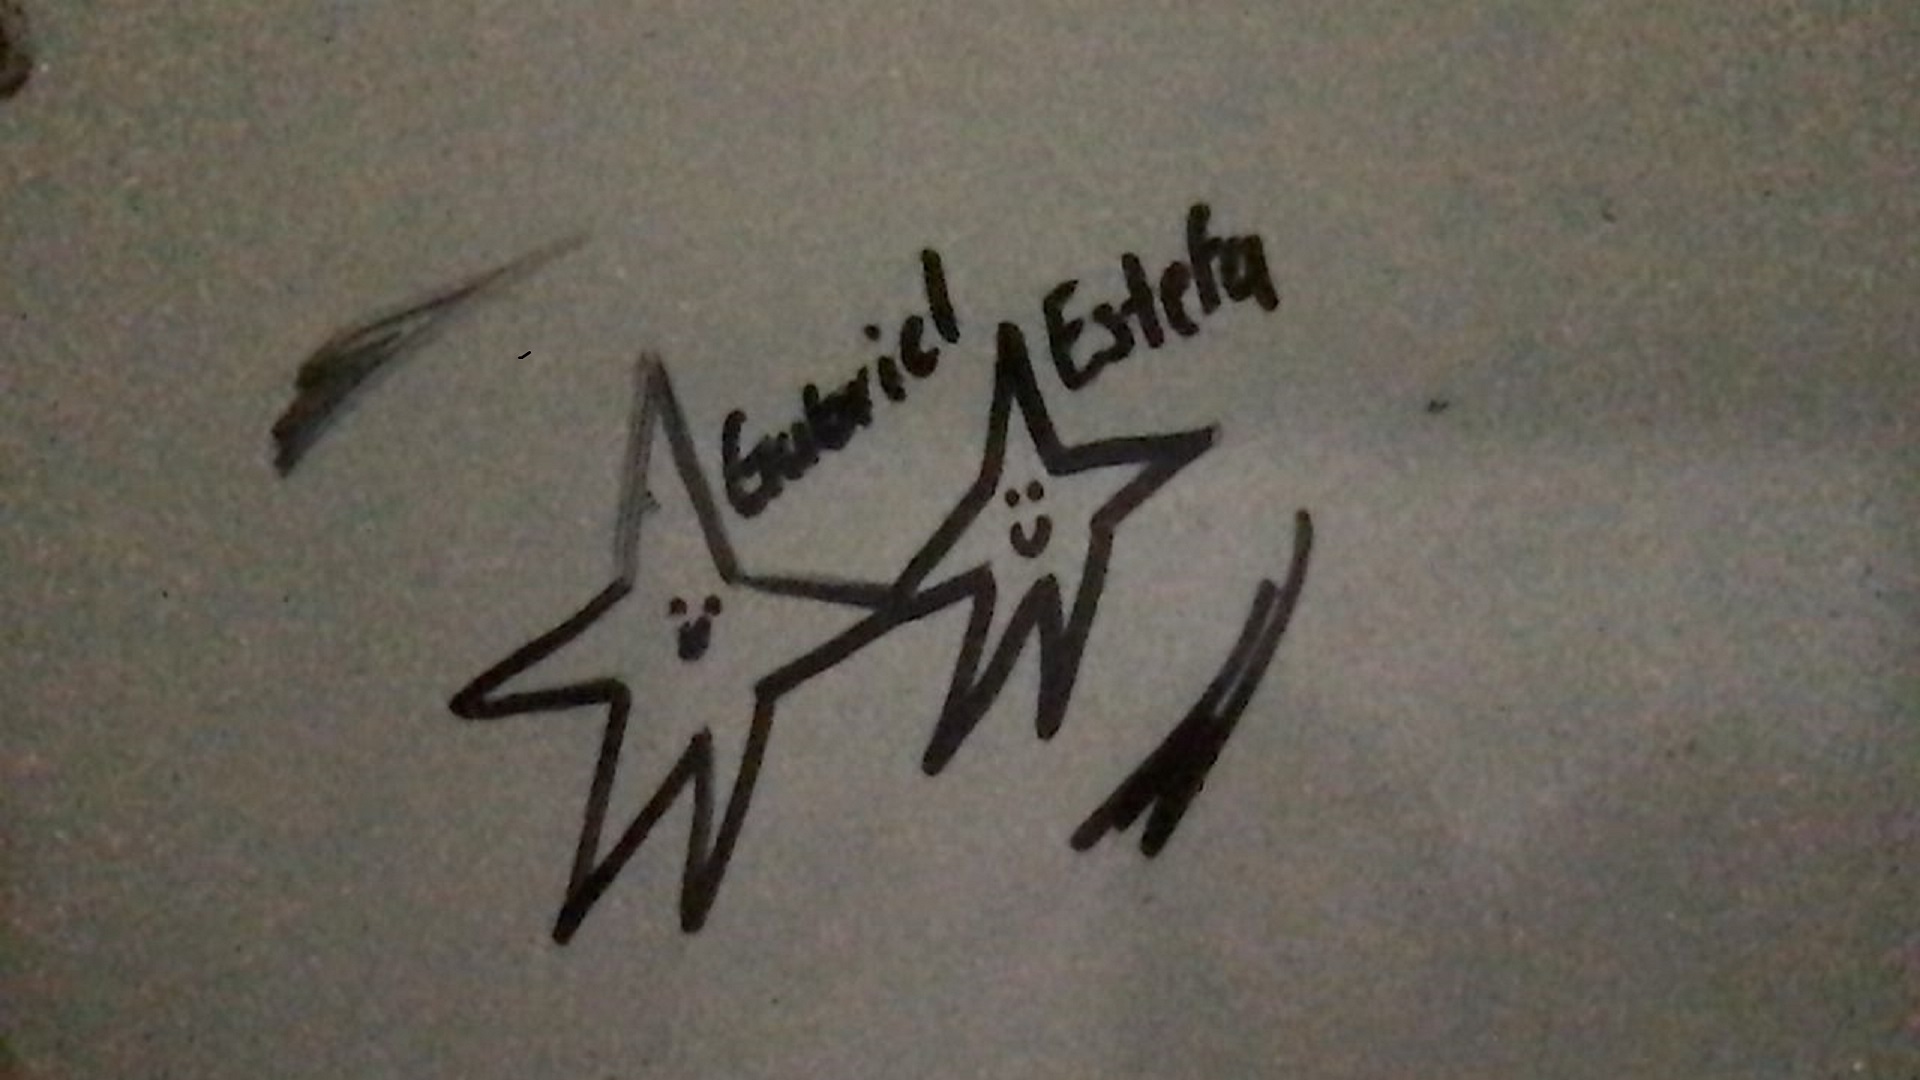 Gabriel
Estefa